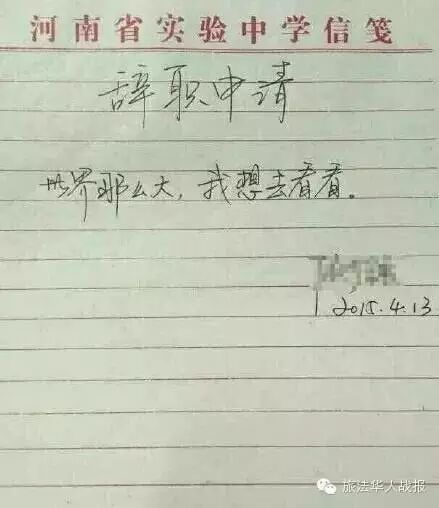 河南省实验中学信笺
辞职申请
世界那么大，我想去看看。
2015.4.13
旅法华人战报